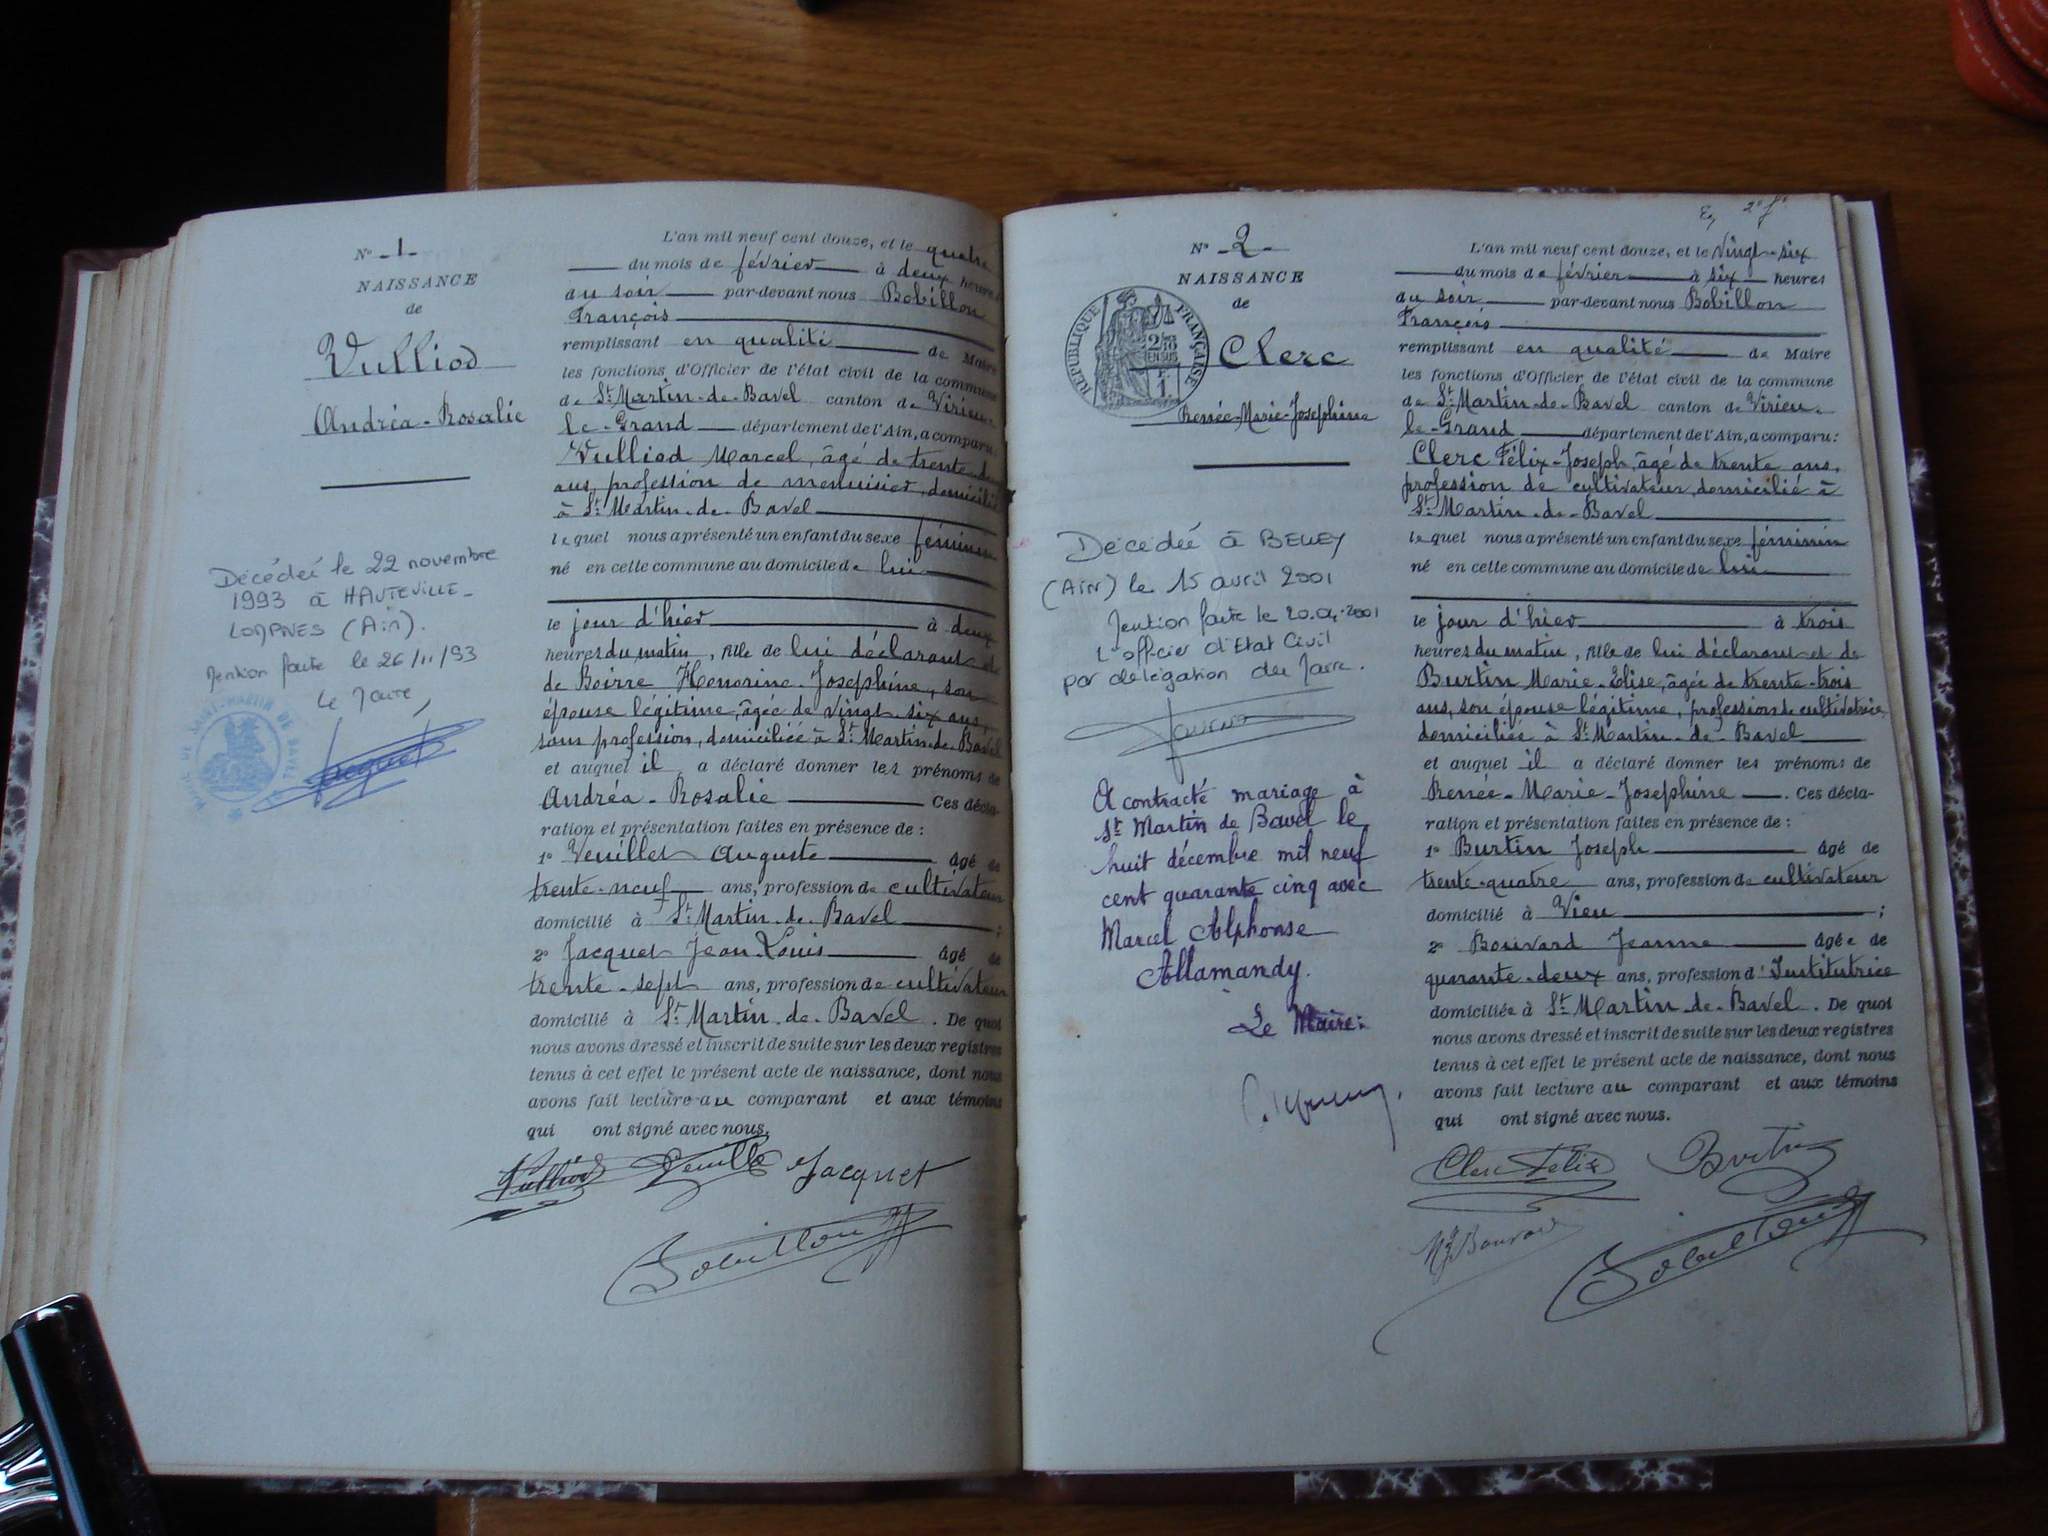 N° 1
NAISSANCE
de
Vulliod
Andréa-Rosalie
Décédée le 22 novembre
1993 à HAUTEVILLE-
LOMPNES (Ain).
Mention faite le 26/11/93
Le Maire,
MAIRIE DE SAINT-MARTIN DE BAVEL
Jacquet
L'an mil neuf cent douze, et le quatre
du mois de février à deux heures
du soir par-devant nous Bobillon
François
remplissant en qualité de Maire
les fonctions d'Officier de l'état civil de la commune
de St Martin-de-Bavel canton de Virieu-
le-Grand département de l'Ain, a comparu:
Vulliod Marcel, âgé de trente
ans, profession de menuisier, domicilié
à St Martin-de-Bavel
lequel nous a présenté un enfant du sexe féminin
né en cette commune au domicile de lui
le jour d'hier à deux
heures du matin, fille de lui déclarant et
de Boirre Honorine-Josephine, son
épouse légitime, âgée de vingt-six ans,
sans profession, domiciliée à St Martin-de-Bavel
et auquel il a déclaré donner les prénoms de
Andréa-Rosalie Ces décla-
ration et présentation faites en présence de :
1° Veuillet Auguste âgé de
trente-neuf ans, profession de cultivateur
domicilié à St Martin-de-Bavel ;
2° Jacquet Jean-Louis âgé de
trente-sept ans, profession de cultivateur
domicilié à St Martin-de-Bavel. De quoi
nous avons dressé et inscrit de suite sur les deux registres
tenus à cet effet le présent acte de naissance, dont nous
avons fait lecture au comparant et aux témoins
qui ont signé avec nous.
Vulliod Veuillet Jacquet
Bobillon
2° f°
N° 2
NAISSANCE
de
RÉPUBLIQUE FRANÇAISE
2/10 EN SUS
Clerc
Renée-Marie-Josephine
Décédée à BELLEY
(Ain) le 15 avril 2001
Mention faite le 20.04.2001
L'officier d'Etat Civil
par délégation du Maire.
A contracté mariage à
St Martin de Bavel le
huit décembre mil neuf
cent quarante cinq avec
Marcel Alphonse
Allamandy.
Le Maire:
L'an mil neuf cent douze, et le vingt-six
du mois de février à six heures
du soir par-devant nous Bobillon
François
remplissant en qualité de Maire
les fonctions d'Officier de l'état civil de la commune
de St Martin-de-Bavel canton de Virieu-
le-Grand département de l'Ain, a comparu:
Clerc Félix-Joseph, âgé de trente ans,
profession de cultivateur, domicilié à
St Martin-de-Bavel
lequel nous a présenté un enfant du sexe féminin
né en cette commune au domicile de lui
le jour d'hier à trois
heures du matin, fille de lui déclarant et de
Burtin Marie-Elise, âgée de trente-trois
ans, son épouse légitime, profession de cultivatrice,
domiciliée à St Martin-de-Bavel
et auquel il a déclaré donner les prénoms de
Renée-Marie-Josephine. Ces décla-
ration et présentation faites en présence de :
1° Burtin Joseph âgé de
trente-quatre ans, profession de cultivateur
domicilié à Vieu ;
2° Bouvard Jeanne âgée de
quarante-deux ans, profession d'Institutrice
domiciliée à St Martin-de-Bavel. De quoi
nous avons dressé et inscrit de suite sur les deux registres
tenus à cet effet le présent acte de naissance, dont nous
avons fait lecture au comparant et aux témoins
qui ont signé avec nous.
Clerc Felix Burtin
Bouvard
Bobillon